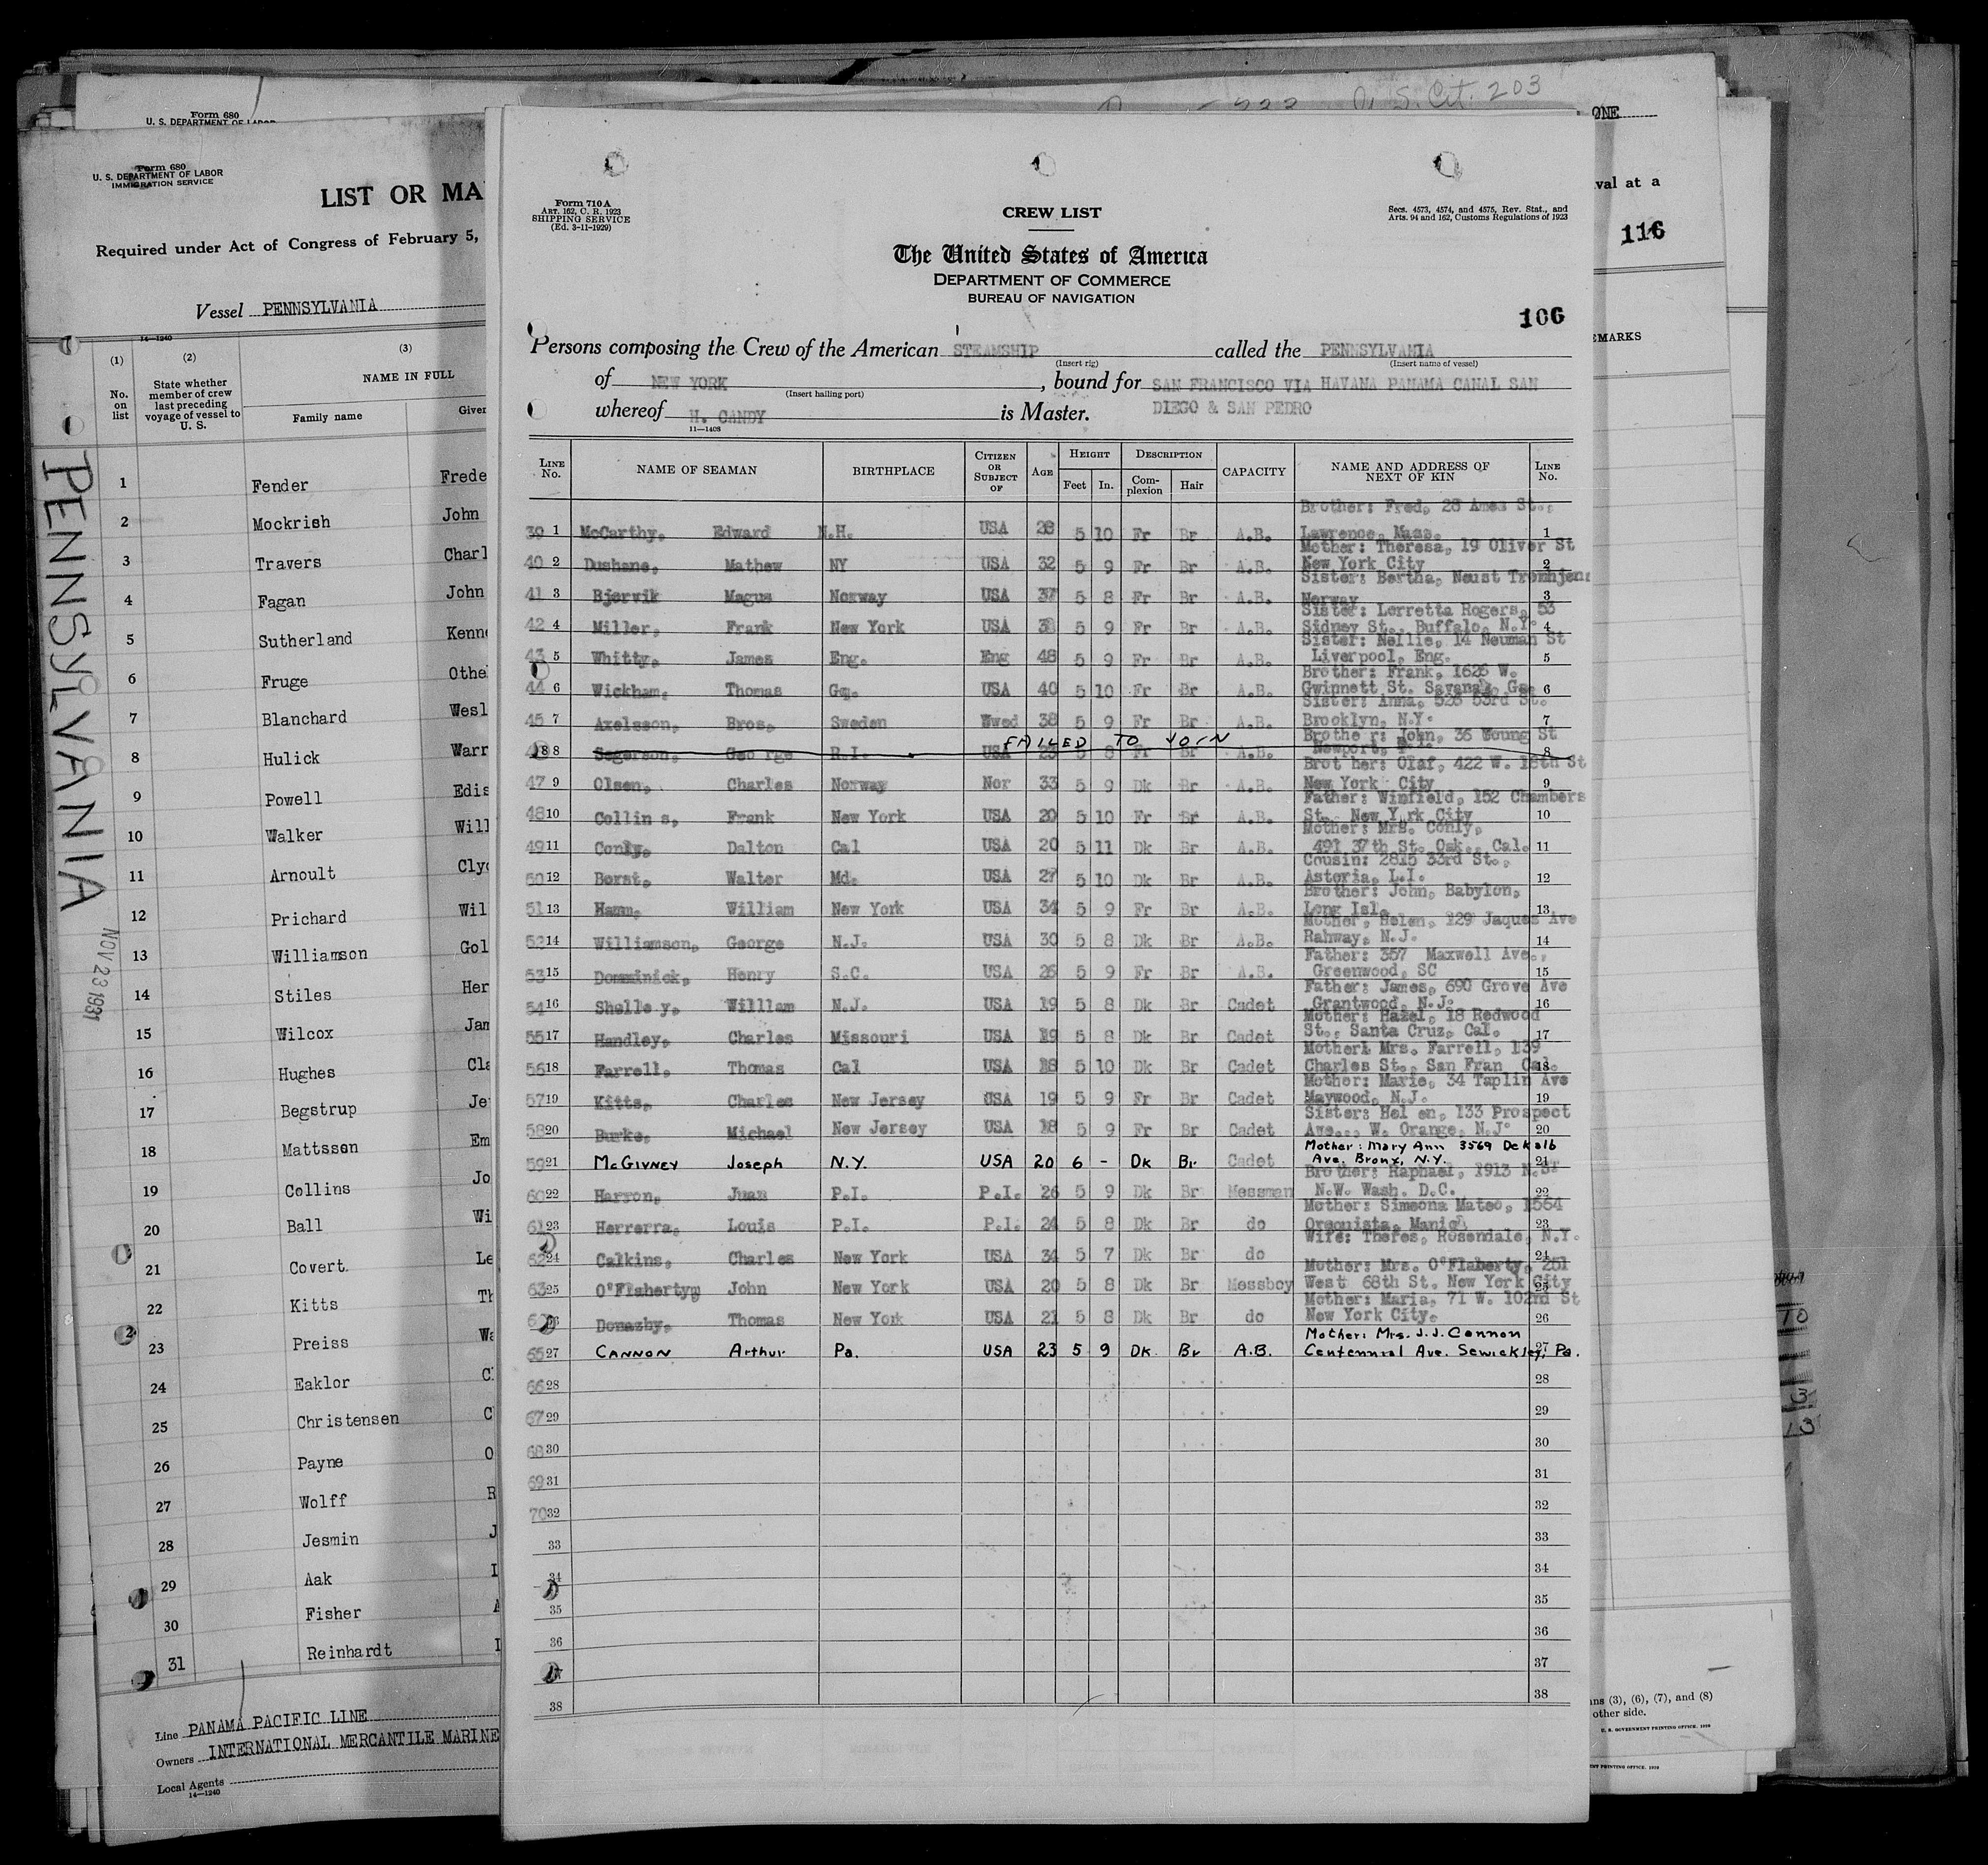 U. S. Cit. 203
Form 680
U. S. DEPARTMENT OF LABOR
Form 680
U. S. DEPARTMENT OF LABOR
IMMIGRATION SERVICE
LIST OR MA
Required under Act of Congress of February 5,
Vessel PENNSYLVANIA
14—1240
(1) (2) (3)
No. on list
State whether member of crew last preceding voyage of vessel to U. S.
NAME IN FULL
Family name Given
1 Fender Frede
2 Mockrish John
3 Travers Charl
4 Fagan John
5 Sutherland Kenne
6 Fruge Othe
7 Blanchard Wesl
8 Hulick Warr
9 Powell Edis
10 Walker Will
11 Arnoult Clyd
12 Prichard Wil
13 Williamson Gol
14 Stiles Her
15 Wilcox Jam
16 Hughes Cla
17 Begstrup Je
18 Mattsson Em
19 Collins Jo
20 Ball Wi
21 Covert Le
22 Kitts Th
23 Preiss Wa
24 Eaklor C
25 Christensen C
26 Payne O
27 Wolff R
28 Jesmin J
29 Aak
30 Fisher A
31 Reinhardt
Line PANAMA PACIFIC LINE
Owners INTERNATIONAL MERCANTILE MARINE
Local Agents
14—1240
PENNSYLVANIA
NOV 23 1931
Form 710 A
ART. 162, C. R. 1923
SHIPPING SERVICE
(Ed. 3-11-1929)
CREW LIST
Secs. 4573, 4574, and 4575, Rev. Stat., and
Arts. 94 and 162, Customs Regulations of 1923
The United States of America
DEPARTMENT OF COMMERCE
BUREAU OF NAVIGATION
106
Persons composing the Crew of the American STEAMSHIP called the PENNSYLVANIA
(Insert rig) (Insert name of vessel)
of NEW YORK, bound for SAN FRANCISCO VIA HAVANA PANAMA CANAL SAN
(Insert hailing port)
whereof H. CANDY is Master. DIEGO & SAN PEDRO
11—1408
LINE No. NAME OF SEAMAN BIRTHPLACE CITIZEN OR SUBJECT OF AGE HEIGHT Feet In. DESCRIPTION Complexion Hair CAPACITY NAME AND ADDRESS OF NEXT OF KIN LINE No.
Brother: Fred, 28 Ames St.,
39 1 McCarthy, Edward N.H. USA 28 5 10 Fr Br A.B. Lawrence, Mass. 1
Mother: Theresa, 19 Oliver St
40 2 Dushane, Mathew NY USA 32 5 9 Fr Br A.B. New York City 2
Sister: Bertha, Neust Tromhjen
41 3 Bjorvik Magus Norway USA 37 5 8 Fr Br A.B. Norway 3
Sister: Lorretta Rogers, 53
42 4 Miller, Frank New York USA 38 5 9 Fr Br A.B. Sidney St., Buffalo, N.Y. 4
Sister: Nellie, 14 Neuman St
43 5 Whitty, James Eng. Eng 48 5 9 Fr Br A.B. Liverpool, Eng. 5
Brother: Frank, 1626 W.
44 6 Wickham, Thomas Ga. USA 40 5 10 Fr Br A.B. Gwinnett St. Savanah Ga. 6
Sister: Anna, 526 53rd St.
45 7 Axelsson, Bros, Sweden Swed 38 5 9 Fr Br A.B. Brooklyn, N.Y. 7
FAILED TO JOIN
Brothe r: John, 36 Young St
8 Segerson, Geo rge R.I. USA 23 5 8 Fr Br A.B. Newport, R.I. 8
Brot her: Olaf, 422 W. 18th St
47 9 Olsen, Charles Norway Nor 33 5 9 Dk Br A.B. New York City 9
Father: Winfield, 152 Chambers
48 10 Collin s, Frank New York USA 20 5 10 Fr Br A.B. St. New Y rk City 10
Mother: Mrs. Conly,
49 11 Conly, Dalton Cal USA 20 5 11 Dk Br A.B. 491 37th St. Oak., Cal. 11
Cousin: 2815 33rd St.,
50 12 Borst, Walter Md. USA 27 5 10 Dk Br A.B. Astoria, L.I. 12
Brother: John, Babylon,
51 13 Hamm, William New York USA 34 5 9 Fr Br A.B. Long Isl. 13
Mother, Helen, 129 Jaques Ave
52 14 Williamson, George N.J. USA 30 5 8 Dk Br A.B. Rahway, N.J. 14
Father: 357 Maxwell Ave.,
53 15 Domminick, Henry S.C. USA 26 5 9 Fr Br A.B. Greenwood, SC 15
Father: James, 690 Grove Ave
54 16 Shelle y, William N.J. USA 19 5 8 Dk Br Cadet Grantwood, N.J. 16
Mother: Hazel, 18 Redwood
55 17 Handley, Charles Missouri USA 19 5 8 Dk Br Cadet St., Santa Cruz, Cal. 17
Mother: Mrs. Farrell, 139
56 18 Farrell, Thomas Cal USA 18 5 10 Dk Br Cadet Charles St., San Fran Cal. 18
Mother: Marie, 34 Taplin Ave
57 19 Kitts, Charles New Jersey USA 19 5 9 Fr Br Cadet Maywood, N.J. 19
Sister: Hel en, 133 Prospect
58 20 Burke, Michael New Jersey USA 18 5 9 Fr Br Cadet Ave., W. Orange, N.J. 20
Mother: Mary Ann 3569 DeKalb
59 21 McGivney Joseph N.Y. USA 20 6 - Dk Br Cadet Ave. Bronx, N.Y. 21
Brother: Raphael, 1913 N. St
60 22 Harron, Juan P.I. P.I. 26 5 9 Dk Br Messman N.W. Wash. D.C. 22
Mother: Simeona Mateo, 1564
61 23 Herrerra, Louis P.I. P.I. 24 5 8 Dk Br do Orsquista, Manila 23
Wife: Theres, Rosendale, N.Y.
62 24 Calkins, Charles New York USA 34 5 7 Dk Br do 24
Mother: Mrs. O'Flaherty, 251
63 25 O'Flahertym John New York USA 20 5 8 Dk Br Messboy West 68th St. New York City 25
Mother: Maria, 71 W. 102nd St
26 Donazhy, Thomas New York USA 21 5 8 Dk Br do New York City. 26
Mother: Mrs. J. J. Cannon
65 27 CANNON Arthur Pa. USA 23 5 9 Dk Br A.B. Centennial Ave. Sewickley, Pa. 27
66 28 28
67 29 29
68 30 30
69 31 31
70 32 32
33 33
34 34
35 35
36 36
37
38 38
ONE
val at a
116
EMARKS
10
3
13
ns (3), (6), (7), and (8)
other side.
U. S. GOVERNMENT PRINTING OFFICE. 1929
ENT PRINTING OFFICE. 1929